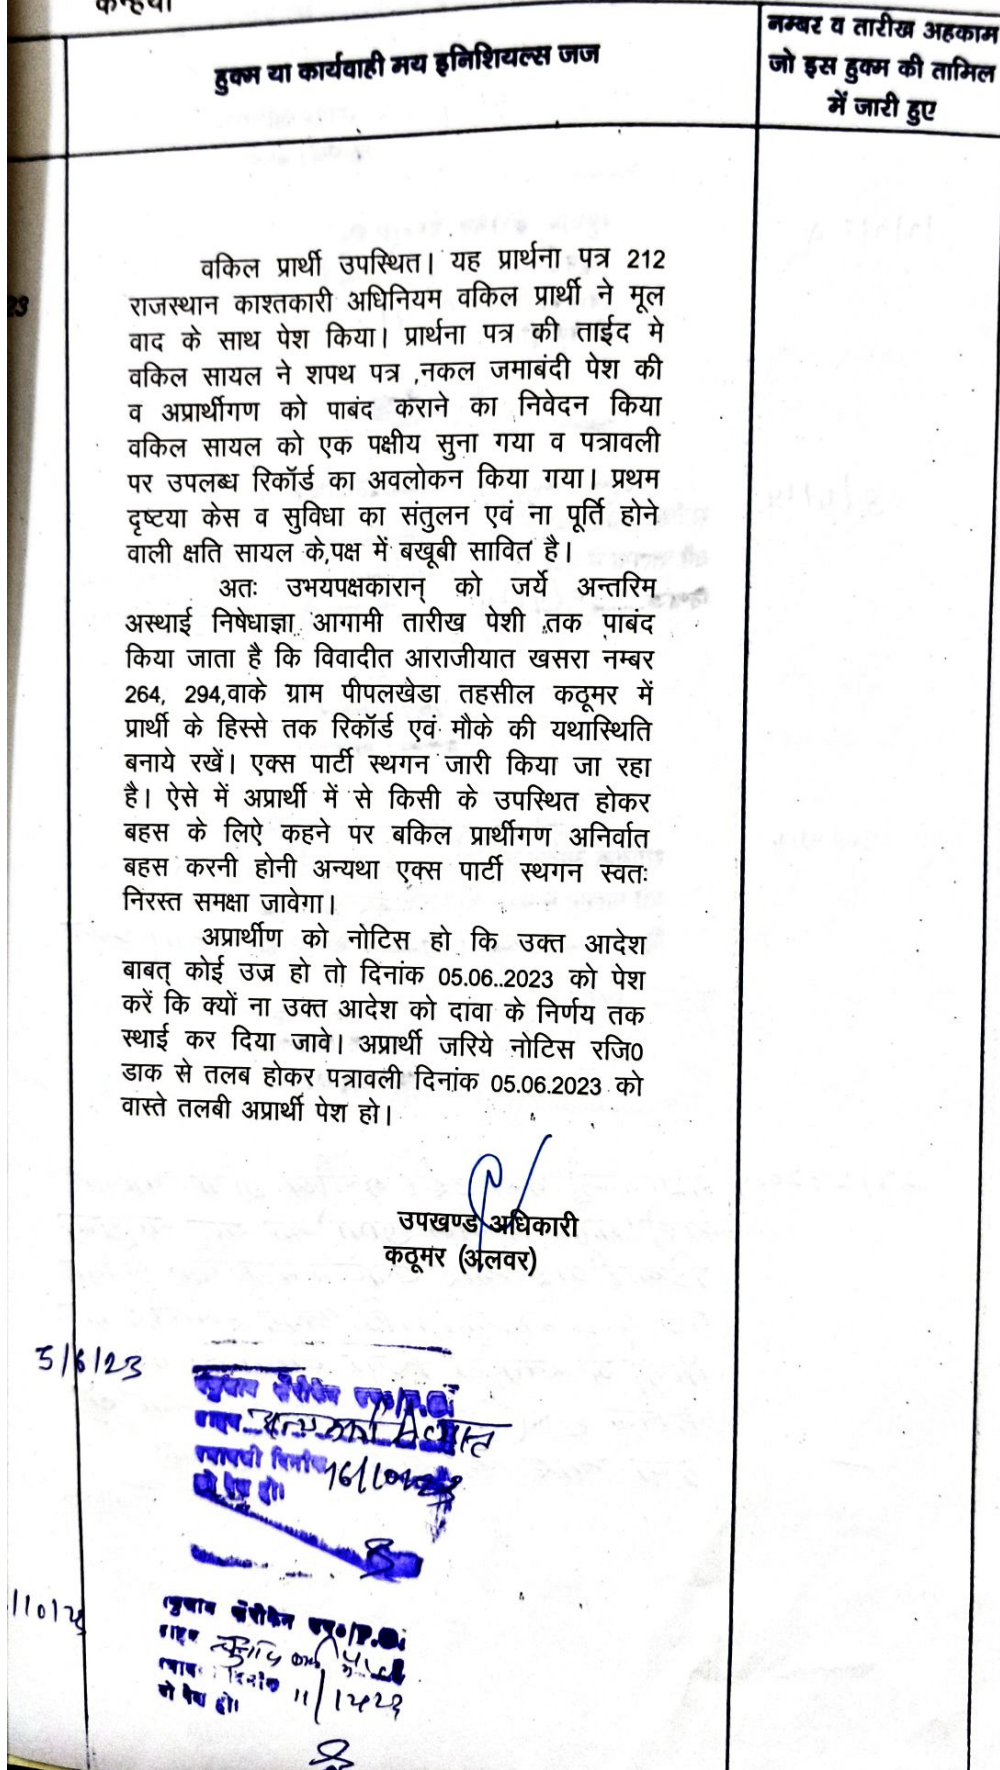 कन्हैया
हुक्म या कार्यवाही मय इनिशियल्स जज
नम्बर व तारीख अहकाम
जो इस हुक्म की तामिल
में जारी हुए
वकिल प्रार्थी उपस्थित। यह प्रार्थना पत्र 212
राजस्थान काश्तकारी अधिनियम वकिल प्रार्थी ने मूल
वाद के साथ पेश किया। प्रार्थना पत्र की ताईद मे
वकिल सायल ने शपथ पत्र ,नकल जमाबंदी पेश की
व अप्रार्थीगण को पाबंद कराने का निवेदन किया
वकिल सायल को एक पक्षीय सुना गया व पत्रावली
पर उपलब्ध रिकॉर्ड का अवलोकन किया गया। प्रथम
दृष्टया केस व सुविधा का संतुलन एवं ना पूर्ति होने
वाली क्षति सायल के,पक्ष में बखूबी सावित है।
अतः उभयपक्षकारान् को जर्ये अन्तरिम
अस्थाई निषेधाज्ञा आगामी तारीख पेशी तक पाबंद
किया जाता है कि विवादीत आराजीयात खसरा नम्बर
264, 294,वाके ग्राम पीपलखेडा तहसील कठूमर में
प्रार्थी के हिस्से तक रिकॉर्ड एवं मौके की यथास्थिति
बनाये रखें। एक्स पार्टी स्थगन जारी किया जा रहा
है। ऐसे में अप्रार्थी में से किसी के उपस्थित होकर
बहस के लिऐ कहने पर बकिल प्रार्थीगण अनिर्वात
बहस करनी होनी अन्यथा एक्स पार्टी स्थगन स्वतः
निरस्त समक्षा जावेगा।
अप्रार्थीण को नोटिस हो कि उक्त आदेश
बाबत् कोई उज्र हो तो दिनांक 05.06..2023 को पेश
करें कि क्यों ना उक्त आदेश को दावा के निर्णय तक
स्थाई कर दिया जावे। अप्रार्थी जरिये नोटिस रजि0
डाक से तलब होकर पत्रावली दिनांक 05.06.2023 को
वास्ते तलबी अप्रार्थी पेश हो।
उपखण्ड अधिकारी
कठूमर (अलवर)
5/6/23
दिनांक
को पेश हो।
दिनांक
को पेश हो।